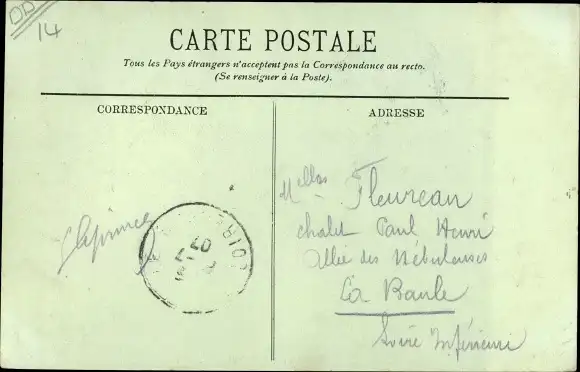 14
CARTE POSTALE
Tous les Pays étrangers n'acceptent pas la Correspondance au recto.
(Se renseigner à la Poste).
CORRESPONDANCE
ADRESSE
Melles Fleureau
chalet Paul Henri
Allée des Nébuleuses
La Baule
Loire Inférieure